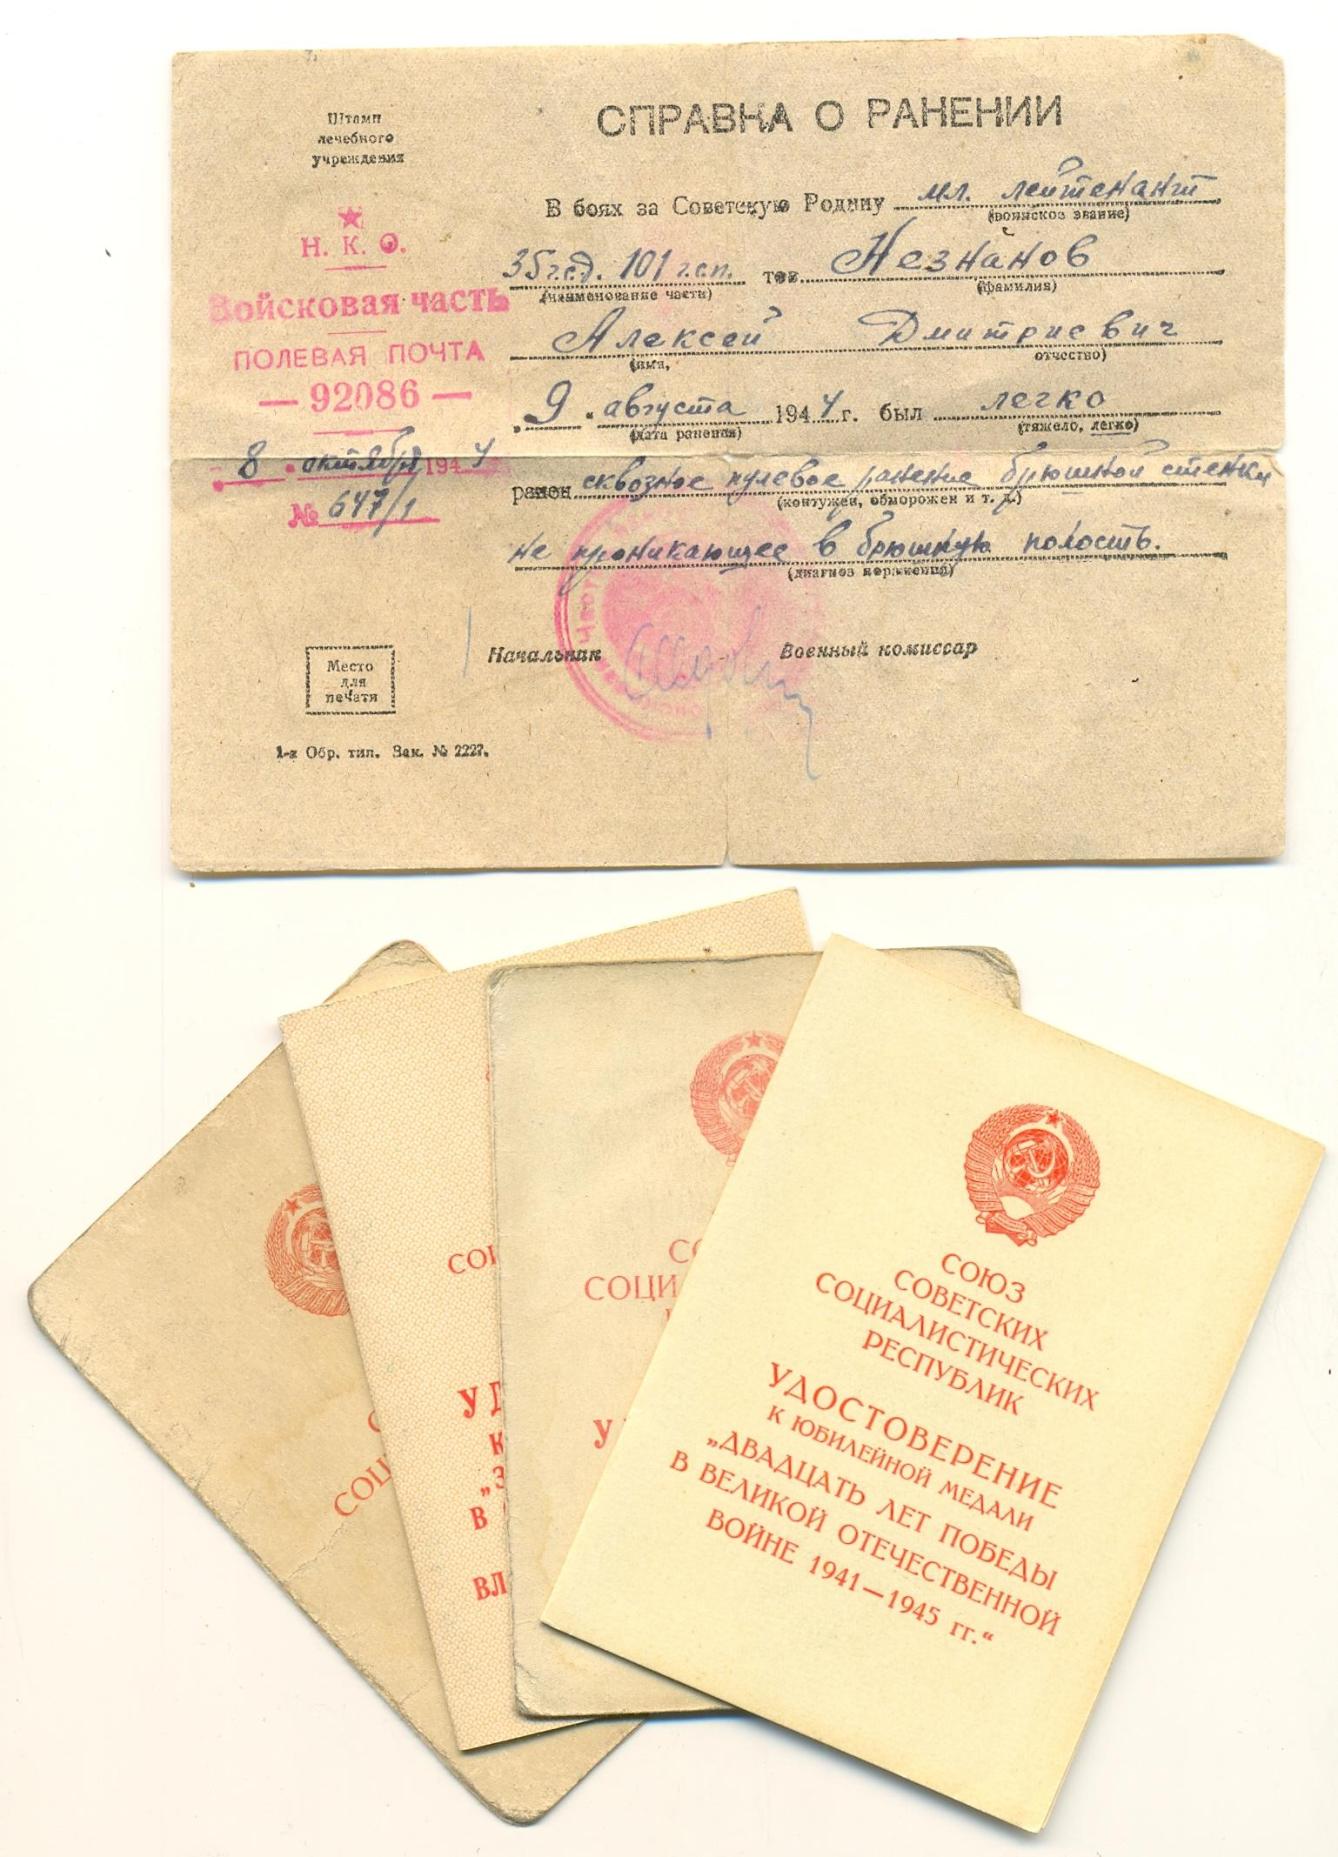 Штамп
лечебного
учреждения
Н. К. О.
Войсковая часть
ПОЛЕВАЯ ПОЧТА
— 92086 —
8 • октября 1944
№ 647/1
СПРАВКА О РАНЕНИИ
В боях за Советскую Родину мл. лейтенант
(воинское звание)
35 г.с.д. 101 г.с.п. тов. Незнанов
(наименование части) (фамилия)
Алексей Дмитриевич
(имя, отчество)
„9“ августа 1944 г. был легко
(дата ранения) (тяжело, легко)
ранен сквозное пулевое ранение брюшной стенки
(контужен, обморожен и т. д.)
не проникающее в брюшную полость.
(диагноз поражения)
Начальник Военный комиссар
Место
для
печати
1-я Обр. тип. Зак. № 2227.
СОЦ
СОЦ
УД
К
„З
В
ВЛ
СО
СОЦИ
У
СОЮЗ
СОВЕТСКИХ
СОЦИАЛИСТИЧЕСКИХ
РЕСПУБЛИК
УДОСТОВЕРЕНИЕ
К ЮБИЛЕЙНОЙ МЕДАЛИ
„ДВАДЦАТЬ ЛЕТ ПОБЕДЫ
В ВЕЛИКОЙ ОТЕЧЕСТВЕННОЙ
ВОЙНЕ 1941—1945 гг.“